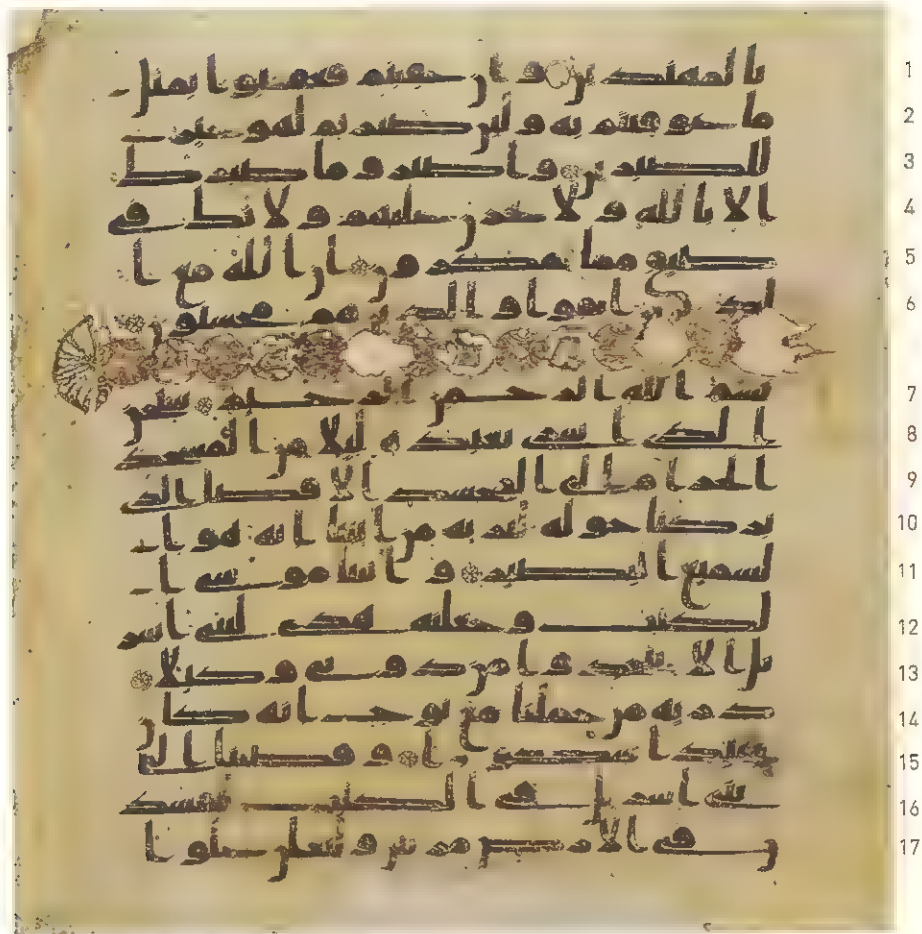 بالمهتدين وان عقبتم فعقبوا بمثل 1
ما عوقبتم به ولين صبرتم لهو خير 2
للصبرين واصبر وما صبرك 3
الا بالله ولا تحزن عليهم ولا تك في 4
ضيق مما يمكرون ان الله مع ا 5
لذين اتقوا والذين هم محسنون 6
بسم الله الرحمن الرحيم سبحن 7
الذي اسرى بعبده ليلا من المسجد 8
الحرام الى المسجد الاقصا الذي 9
بركنا حوله لنريه من ايتنا انه هو ا 10
لسميع البصير واتينا موسى ا 11
لكتب وجعلنه هدى لبني اسر 12
يل الا تتخذوا من دوني وكيلا 13
ذرية من حملنا مع نوح انه كان 14
عبدا شكورا وقضينا الى 15
بني اسريل في الكتب لتفسد 16
ن في الارض مرتين ولتعلن علوا 17